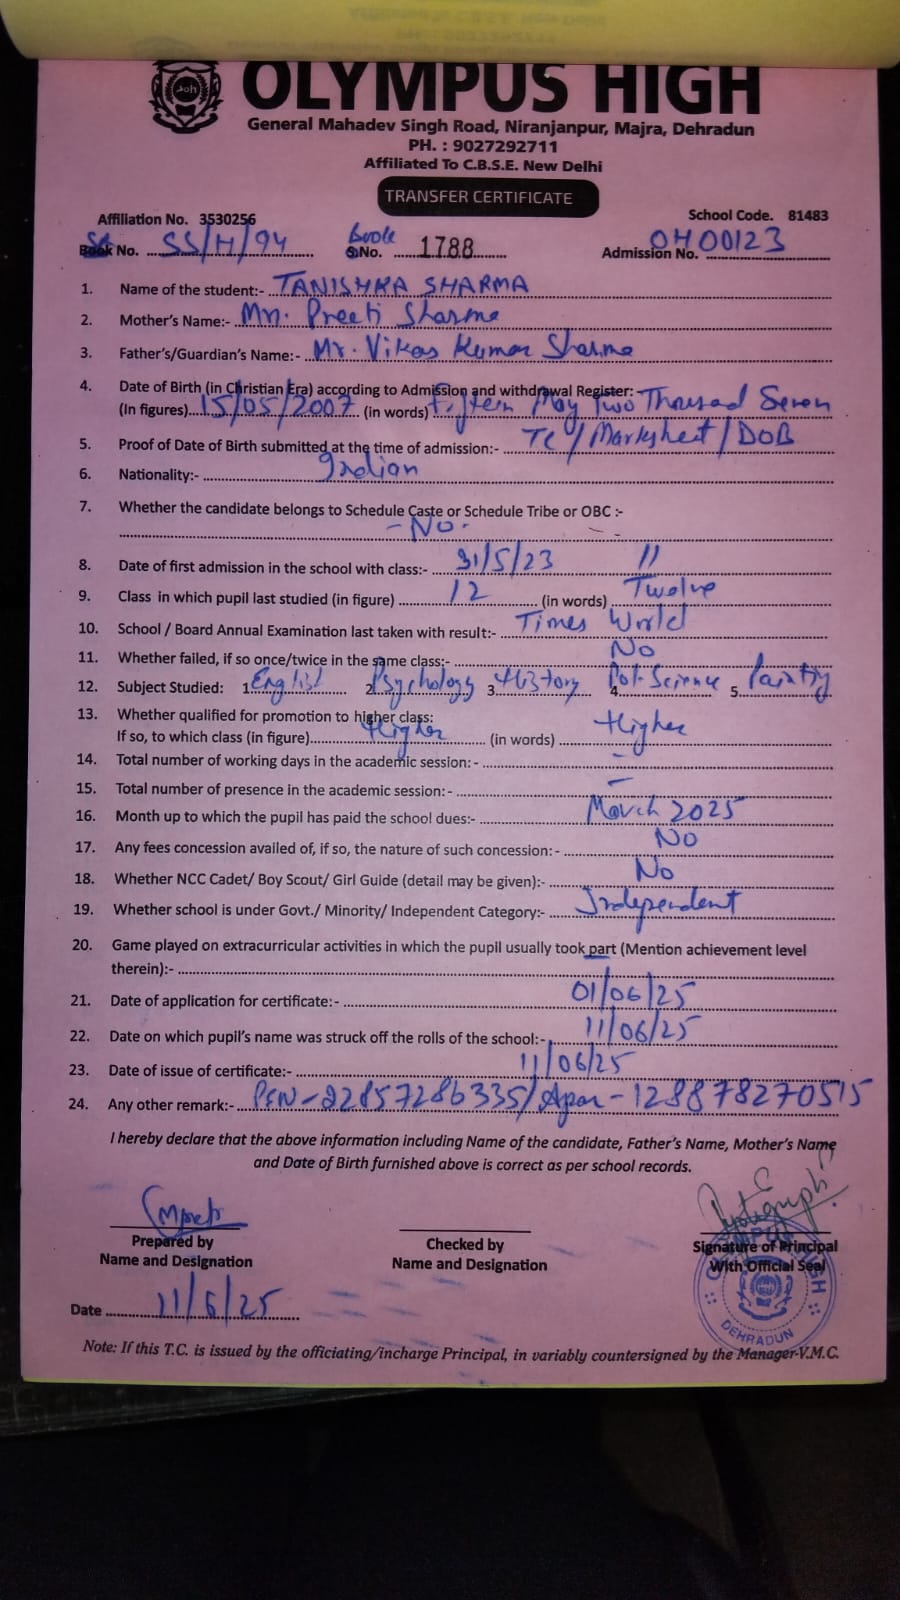 OLYMPUS HIGH
General Mahadev Singh Road, Niranjanpur, Majra, Dehradun
PH. : 9027292711
Affiliated To C.B.S.E. New Delhi
TRANSFER CERTIFICATE
Affiliation No. 3530256 School Code. 81483
Book No. SS/H/94 Book S.No. 1788 Admission No. OH00123
1. Name of the student:- TANISHKA SHARMA
2. Mother's Name:- Mrs. Preeti Sharma
3. Father's/Guardian's Name:- Mr. Vikas Kumar Sharma
4. Date of Birth (in Christian Era) according to Admission and withdrawal Register:
(In figures) 15/05/2007 (in words) Fifteen May Two Thousand Seven
5. Proof of Date of Birth submitted at the time of admission:- TC/Marksheet/DOB
6. Nationality:- Indian
7. Whether the candidate belongs to Schedule Caste or Schedule Tribe or OBC :-
- No -
8. Date of first admission in the school with class:- 31/5/23 11
9. Class in which pupil last studied (in figure) 12 (in words) Twelve
10. School / Board Annual Examination last taken with result:- Times World
11. Whether failed, if so once/twice in the same class:- No
12. Subject Studied: 1. English 2. Psychology 3. History 4. Pol. Science 5. Painting
13. Whether qualified for promotion to higher class:
If so, to which class (in figure) Higher (in words) Higher
14. Total number of working days in the academic session: - -
15. Total number of presence in the academic session: - -
16. Month up to which the pupil has paid the school dues:- March 2025
17. Any fees concession availed of, if so, the nature of such concession: - No
18. Whether NCC Cadet/ Boy Scout/ Girl Guide (detail may be given):- No
19. Whether school is under Govt./ Minority/ Independent Category:- Independent
20. Game played on extracurricular activities in which the pupil usually took part (Mention achievement level
therein):-
21. Date of application for certificate:- 01/06/25
22. Date on which pupil's name was struck off the rolls of the school:- 11/06/25
23. Date of issue of certificate:- 11/06/25
24. Any other remark:- PEN-22857286335/Apar-128878270515
I hereby declare that the above information including Name of the candidate, Father's Name, Mother's Name
and Date of Birth furnished above is correct as per school records.
Prepared by Checked by Signature of Principal
Name and Designation Name and Designation With Official Seal
DEHRADUN
Date 11/6/25
Note: If this T.C. is issued by the officiating/incharge Principal, in variably countersigned by the Manager-V.M.C.